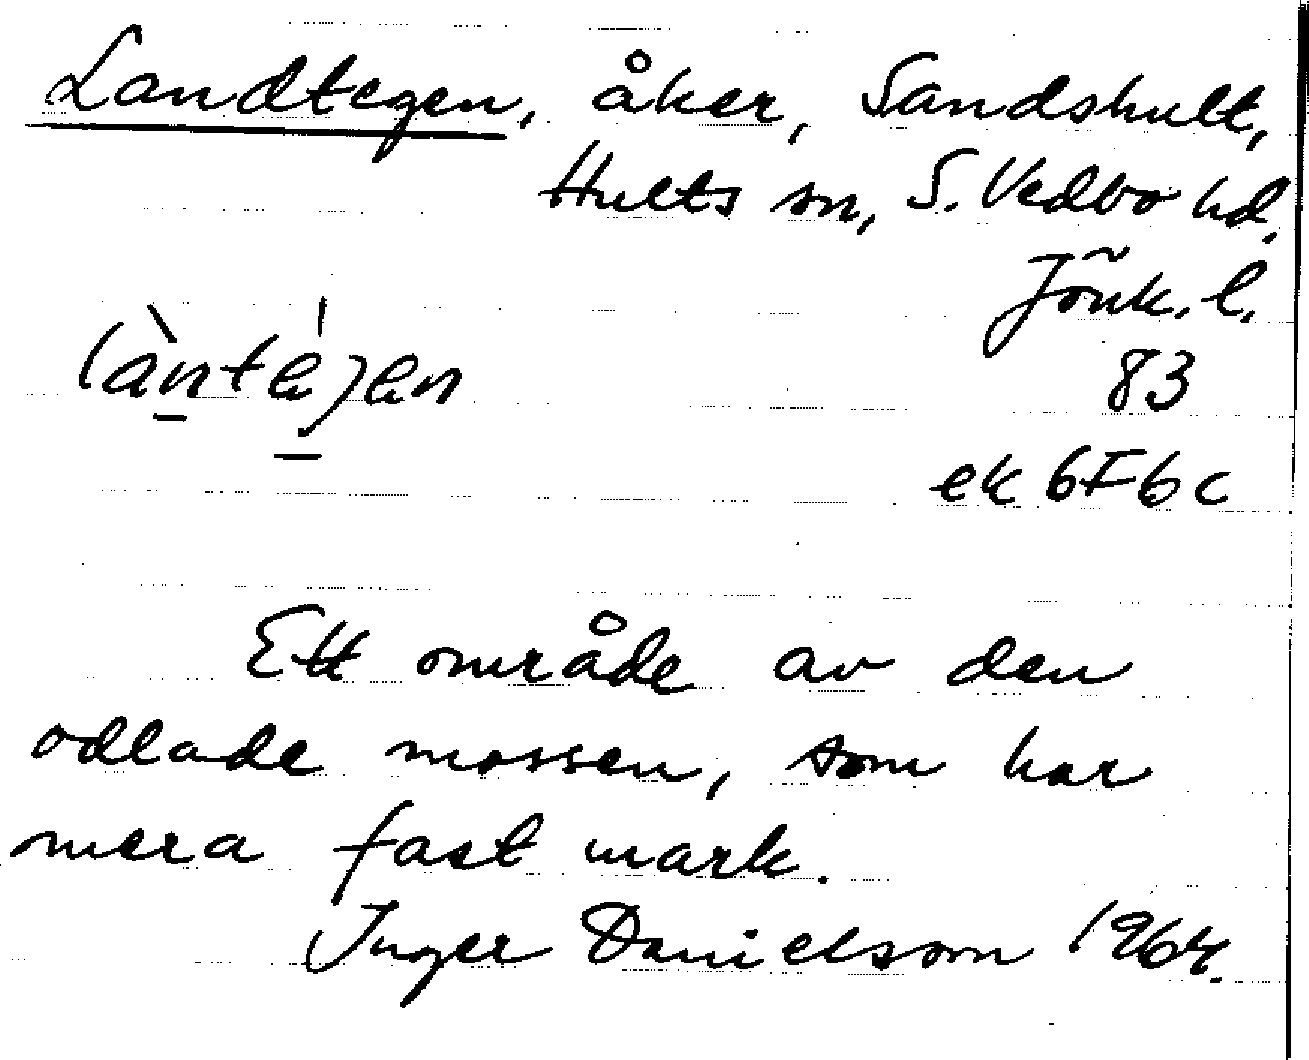 Landtegen, åker, Sandshult,
Hults sn, S. Vedbo hd.
Jönk. l.
làntéjen
83
ek 6F6c
Ett område av den
odlade mossen, som har
mera fast mark.
Inger Danielsson 1964.